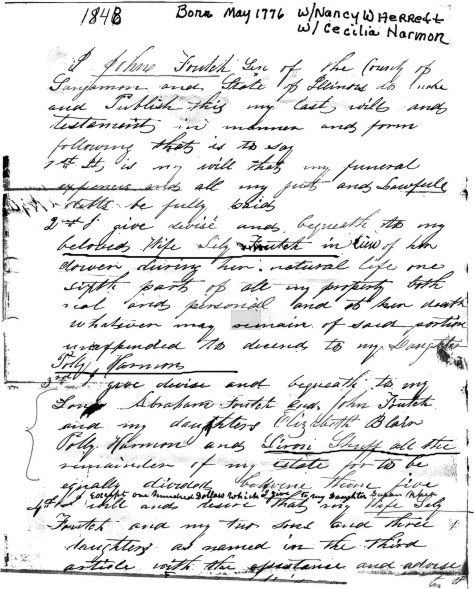 1848 Born May 1776 W/Nancy W Herrett
W/ Cecilia Narmon
I Johne Foutch Sen of the County of
Sangamon and State of Illinois do make
and Publish this my last will and
testament in manner and form
following that is to say
1st It is my will that my funeral
expences and all my just and Lawfull
debts be fully paid
2nd I give devise and bequeath to my
beloved Wife Sily Foutch in lieu of her
dower during her natural life one
sixth part of all my property both
real and personal and at her death
whatever may remain of said portion
unexpended to decend to my Daughter
Polly Harmon
3rd I give devise and bequeath to my
Sons Abraham Foutch and John Foutch
and my daughters Elizabeth
Polly Harmon and all the
remainder of my Estate for to be
equally divided betweene them five
Except one hundred Dollars which I give to my Daughter Susan
4th I will and desire that my Wife Sily
Foutch and my two sons and three
daughters as named in the third
article with the assistance and advise